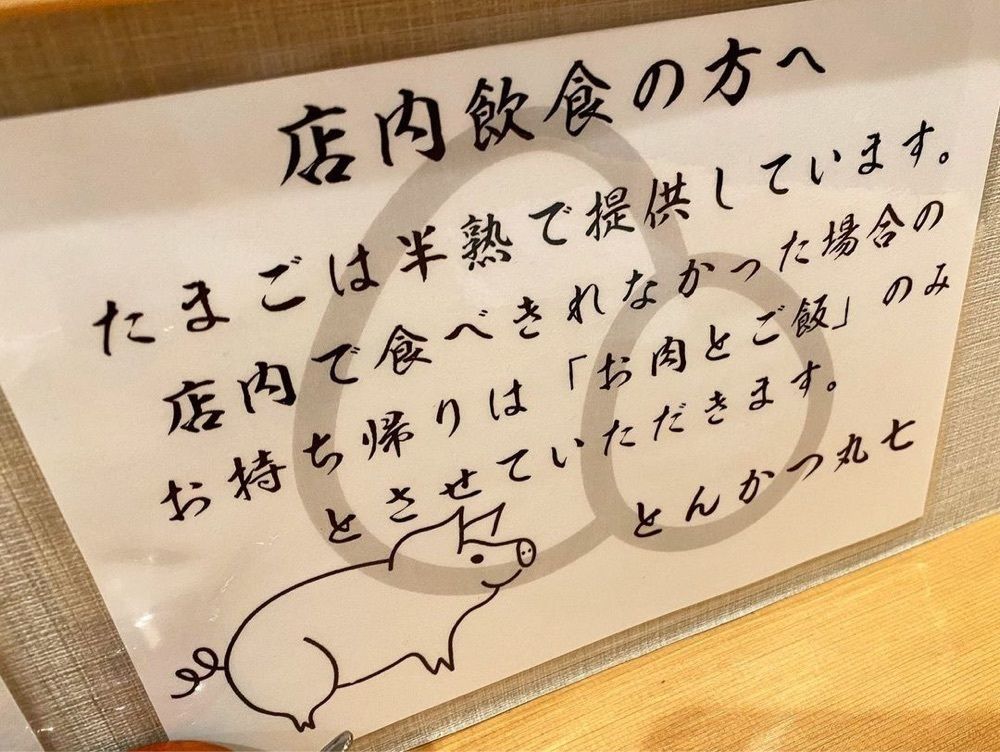 店内飲食の方へ
たまごは半熟で提供しています。
店内で食べきれなかった場合の
お持ち帰りは「お肉とご飯」のみ
とさせていただきます。
とんかつ丸七